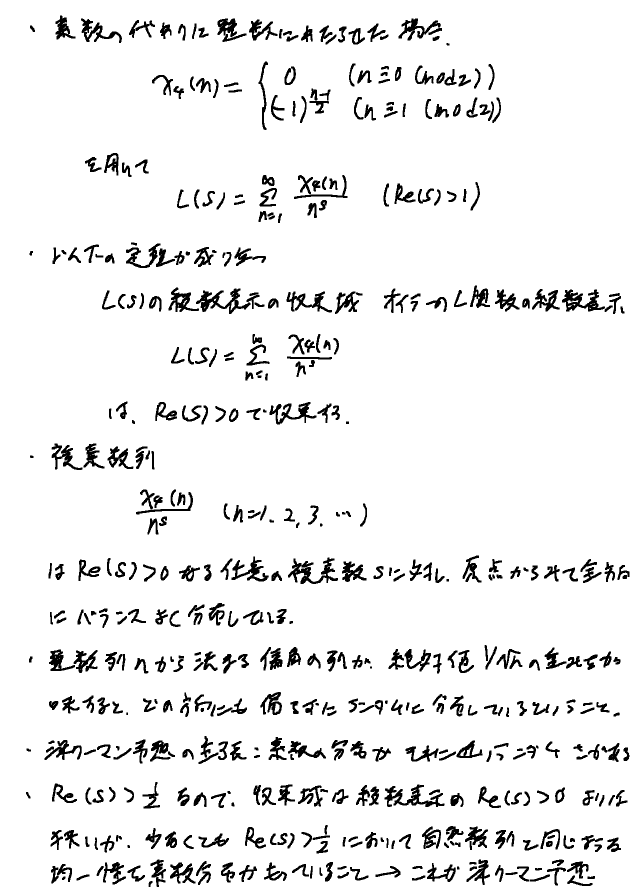 ・素数の代わりに整数にわたらせた場合.
χ₄(n) = { 0 (n≡0 (mod 2))
(-1)^{\frac{n-1}{2}} (n≡1 (mod 2))
を用いて
L(s) = \sum_{n=1}^{∞} \frac{χ₄(n)}{n^s} (Re(s)>1)
・以下の定理が成り立つ
L(s)の級数表示の収束域 オイラーのL関数の級数表示
L(s) = \sum_{n=1}^{∞} \frac{χ₄(n)}{n^s}
は、Re(s)>0で収束する.
・複素数列
\frac{χ₄(n)}{n^s} (n=1. 2, 3. …)
はRe(s)>0なる任意の複素数sに対し. 原点からみて全方向
にバランスよく分布している.
・整数列nから決まる偏角の列が. 絶対値1/√nの重みをか
味すると、どの方向にも偏らずにランダムに分布しているということ。
・深リーマン予想の主張:素数の分布が それに近いランダムさがある
・Re(s)>\frac{1}{2}なので、収束域は級数表示のRe(s)>0よりは
狭いが. 少なくともRe(s)>\frac{1}{2}において自然数列と同じなる
均一性を素数分布がもっていること → これが深リーマン予想